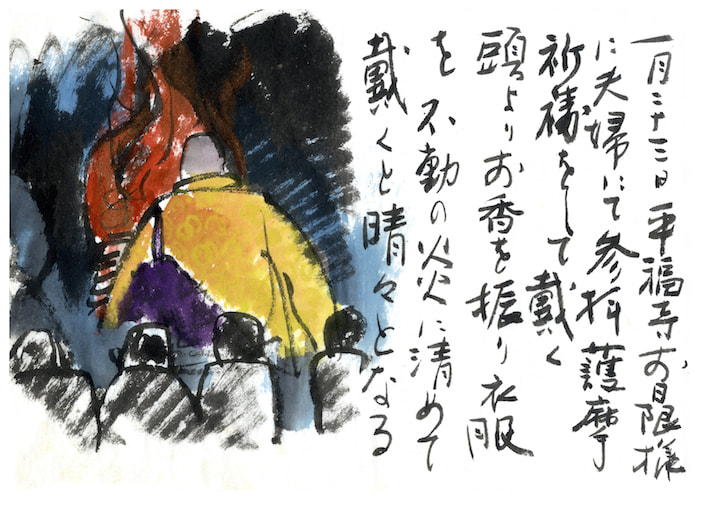 一月二十三日平福寺お日限様
に夫婦にて参拝護摩
祈祷をして戴く
頭よりお香を振り衣服
を不動の火炎に清めて
戴くと晴々となる